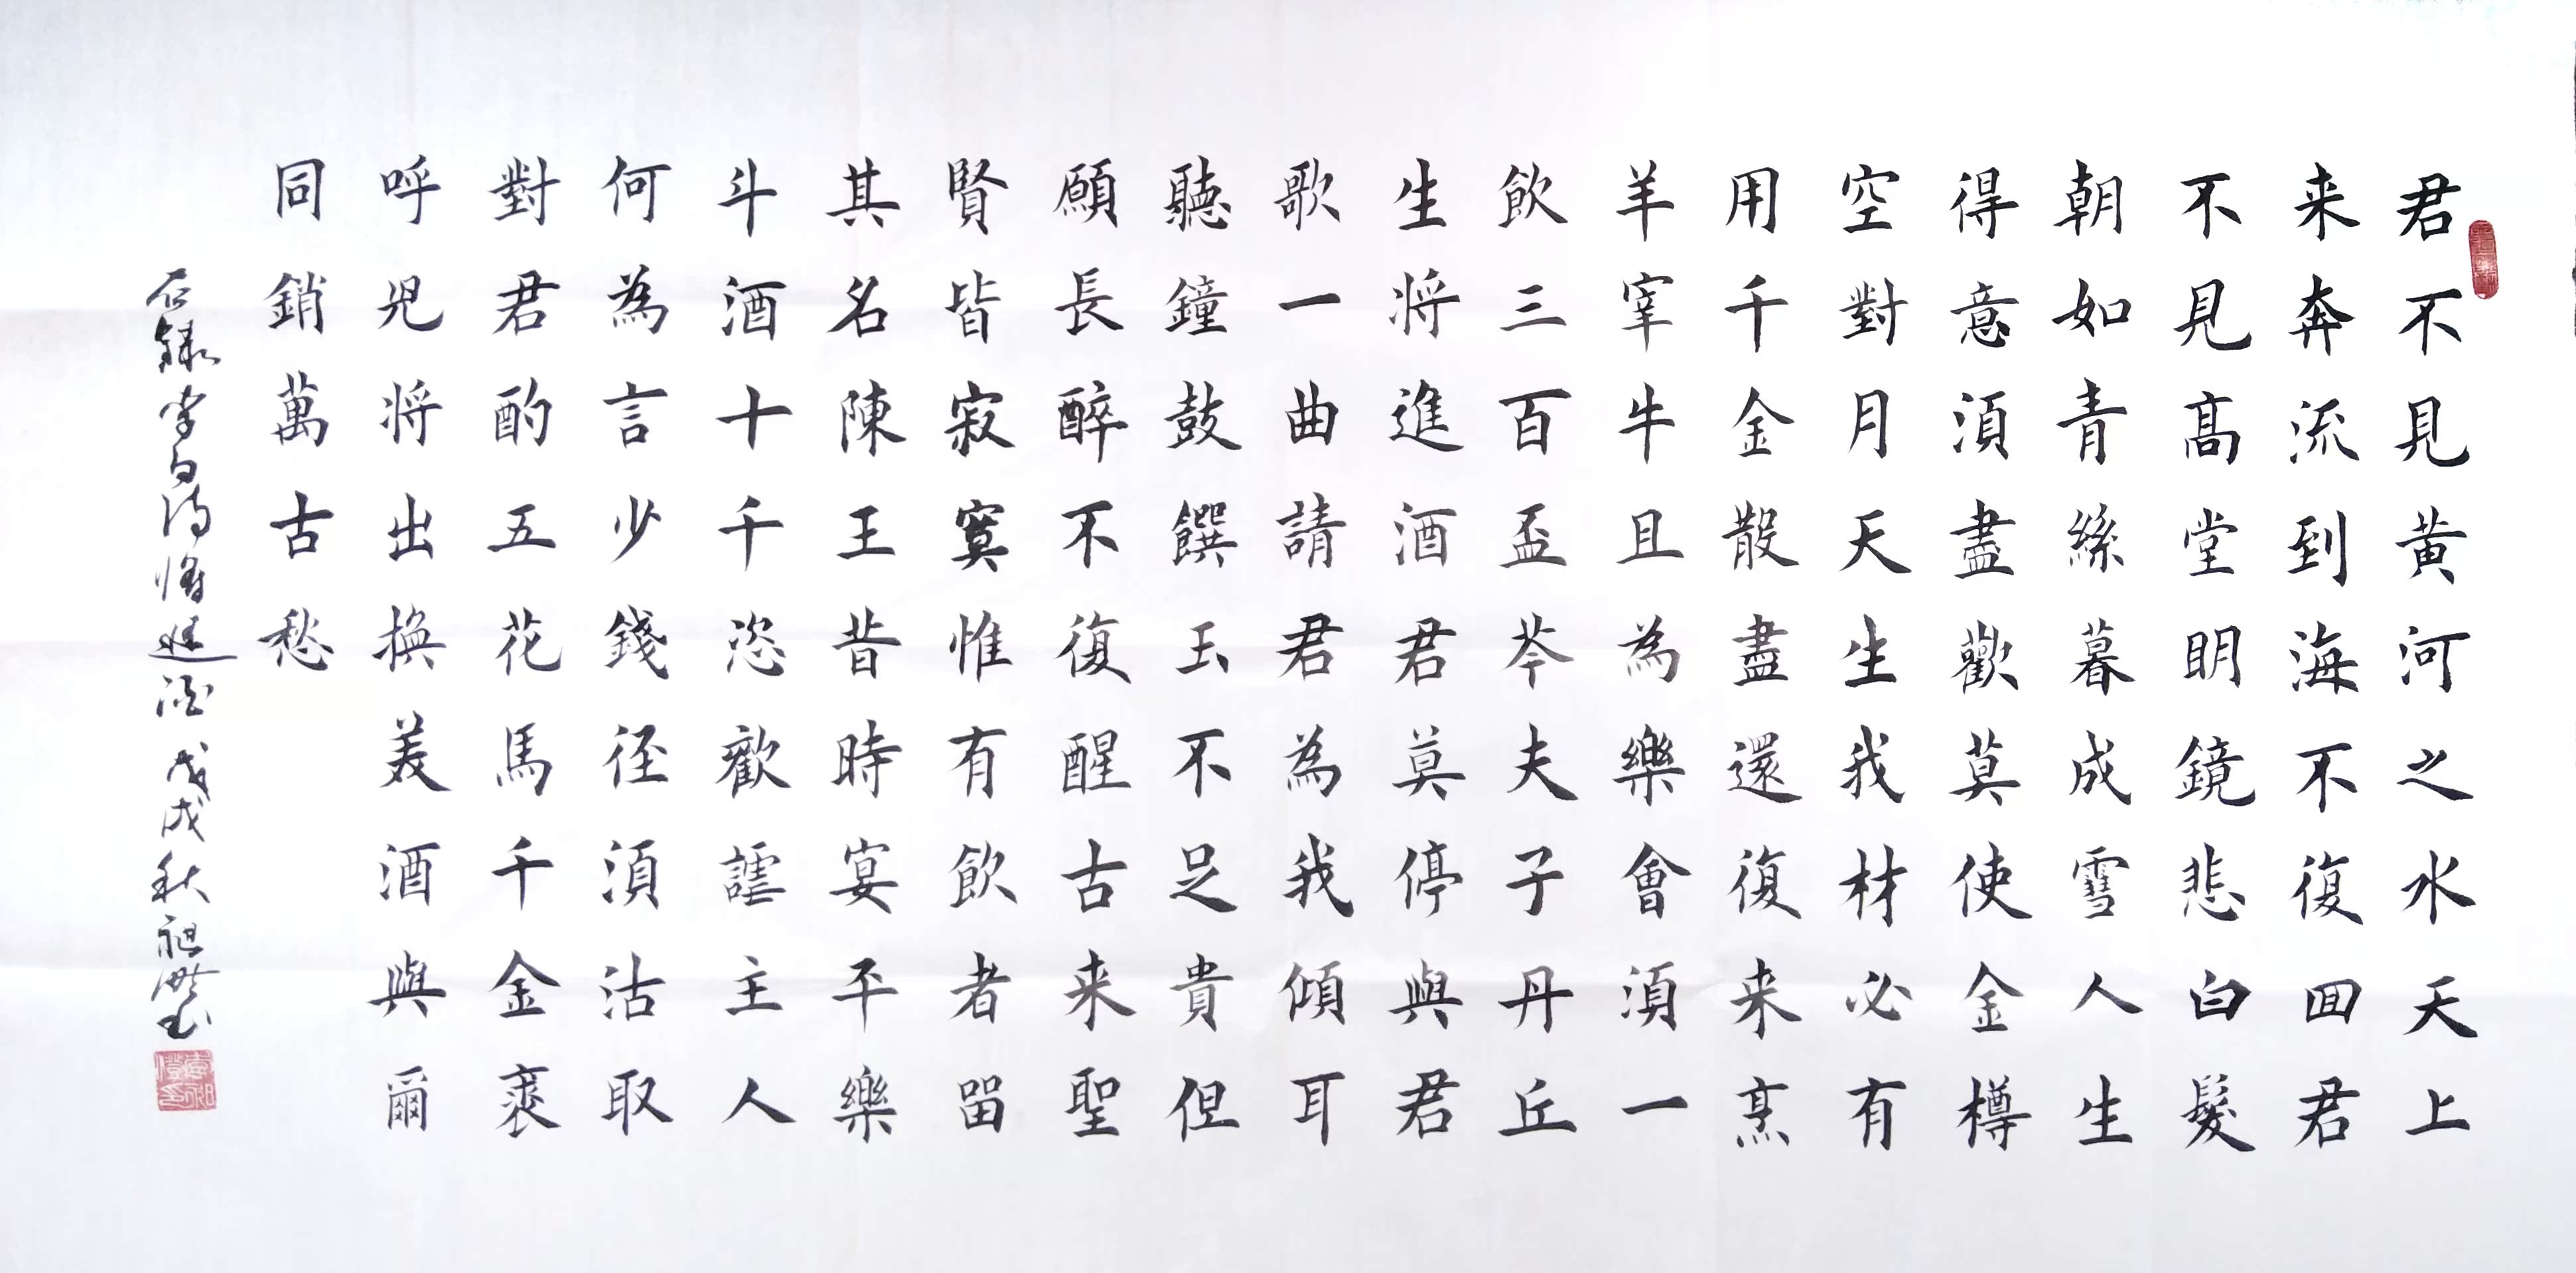 君不見黄河之水天上
来奔流到海不復回君
不見髙堂明鏡悲白髮
朝如青絲暮成雪人生
得意湏盡歡莫使金樽
空對月天生我材必有
用千金散盡還復来烹
羊宰牛且為樂會湏一
飲三百盃岑夫子丹丘
生将進酒君莫停與君
歌一曲請君為我傾耳
聽鐘鼓饌玉不足貴但
願長醉不復醒古来聖
賢皆寂寞惟有飲者留
其名陳王昔時宴平樂
斗酒十千恣歡謔主人
何為言少錢径湏沽取
對君酌五花馬千金裘
呼児将出換美酒與爾
同銷萬古愁
右録李白詩將進酒 戊戌秋祖澄書